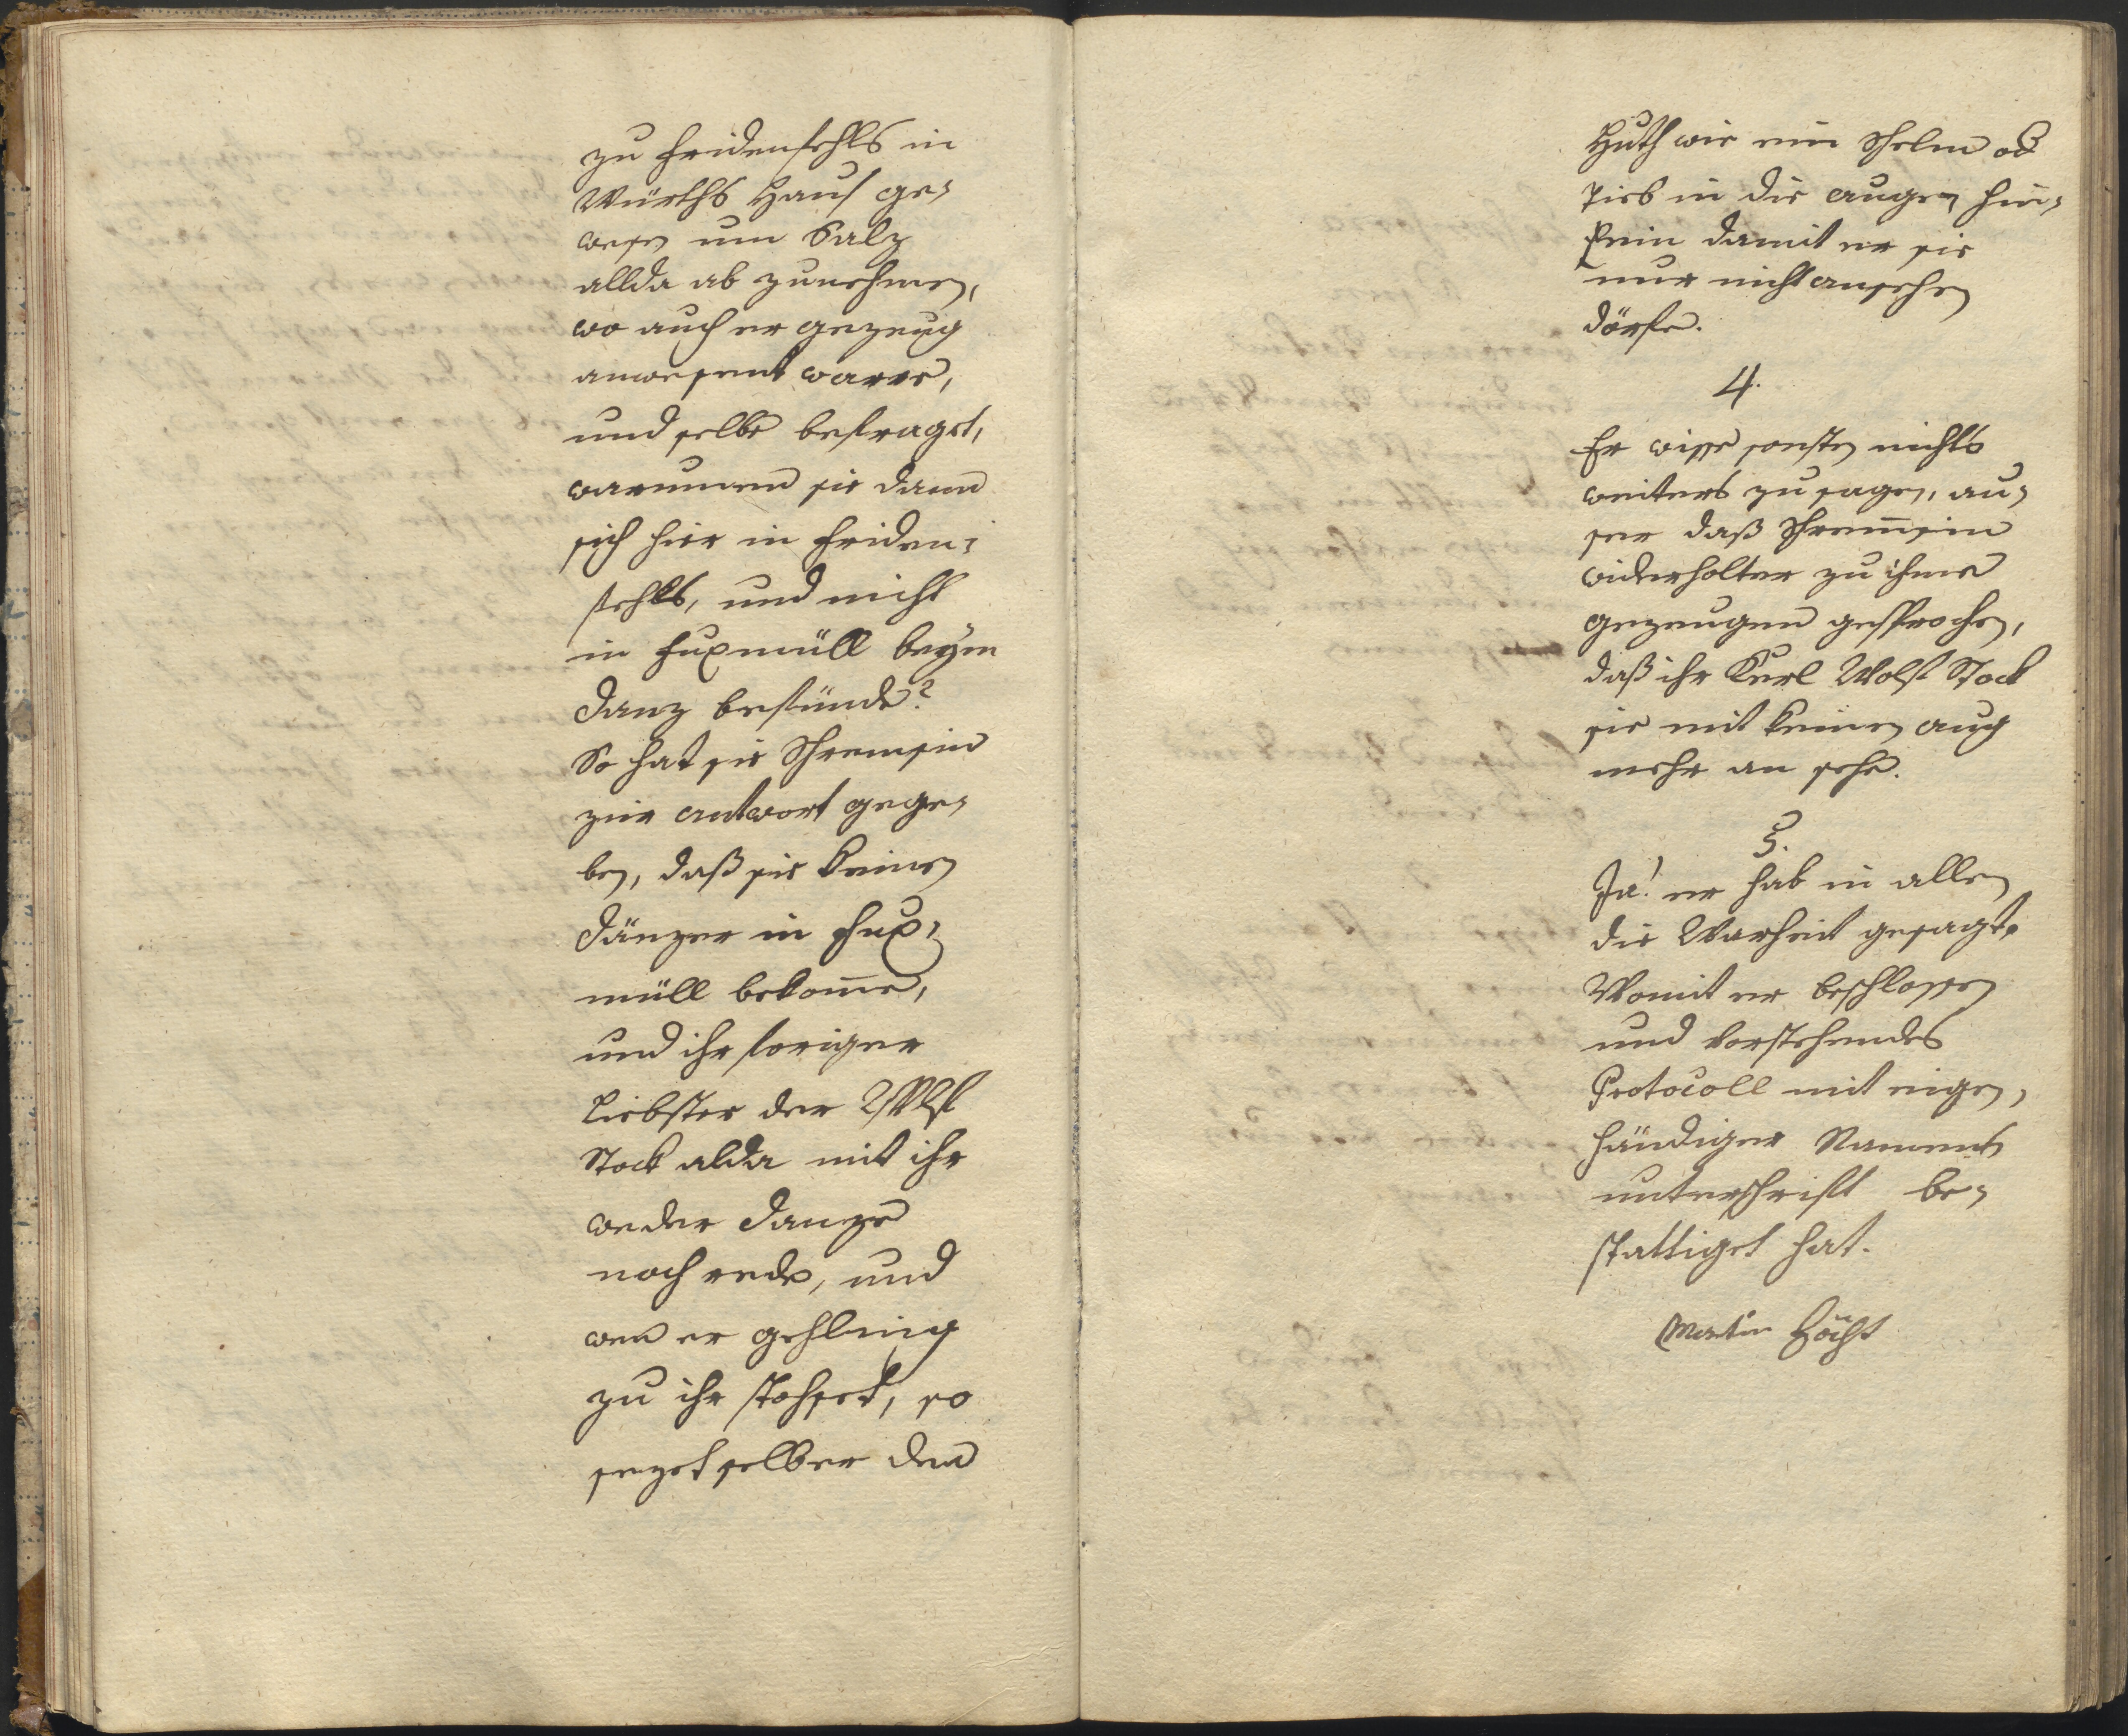 zu Fridenfehls in
Würths Hauß ge-
wesen um Salz
allda ab zunehmen,
wo auch er gezeug
anwesent ware,
und selbe befraget,
warumen sie dann
sich hier in Friden-
fehls, und nicht
in Fuxmüll beym
Danz befünde?
So hat sie Schremsin
zur antwort gege-
ben, daß sie keinen
Dänzer in Fux-
müll bekom̄e,
und ihr foriger
Liebster der Wolf
Stock alda mit ihr
weder Danze
noch rede, und
wen er gehling
zu ihr stosset, so
sezet selber den
Huth wie ein Schelm od
Dieb in die augen hin-
Ein damit er sie
nur nicht ansehen
dörfe.
4.
Er wisse sonsten nichts
weiters zu sagen, au-
ser daß Schrem̄sin
widerholter zu ihme
gezeugen gesprochen,
daß ihr Kerl Wolf Stock
sie mit keinen aug
mehr an sehe.
5.
Ja! er hab in allen
die Warheit gesagt.
Womit er beschlossen
und vorstehendes
Protocoll mit eigen-
händiger Namens
unterschrift be-
stattiget hat.
Martin Höcht